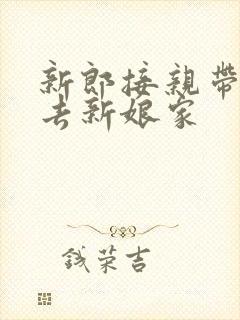 新郎接親帶
去新娘家
钱荣吉